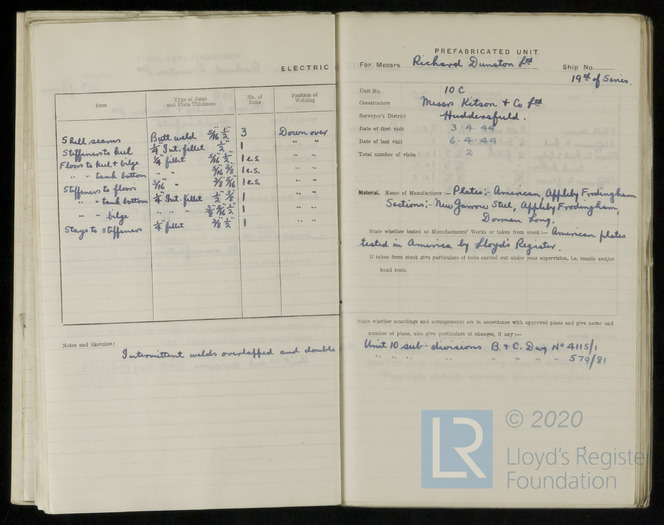 ELECTRIC
Item Type of Joint and Plate Thickness No. of Runs Position of Welding
Shell seams Butt weld 5/16" 1/2" 3 Down over
Stiffeners to keel 1/4" Int. fillet 1/2" 1 " "
Floors to keel & bilge 1/4" fillet 5/16" 1/2" 1 e.s. " "
" " tank bottom 3/16" " 1 e.s. " "
3/16" " 1 e.s. " "
Stiffeners to floors
" " tank bottom 1/4" Int. fillet 1 " "
" " bilge " " " 1 " "
Stays to stiffeners 1/4" fillet 1 " "
Notes and Sketches:
Intermittent welds overlapped and double
PREFABRICATED UNIT
For Messrs. Richard Dunston Ltd Ship No.
19th of Series.
Unit No. 10 C
Constructors Messrs Kitson & Co Ltd
Surveyor's District Huddersfield.
Date of first visit 3. 4. 44
Date of last visit 6. 4. 44
Total number of visits 2
Material. Name of Manufacturer :- Plates:- American, Appleby Frodingham
Sections:- New Jarrow Steel, Appleby Frodingham,
Dorman Long.
State whether tested at Manufacturers' Works or taken from stock :- American plates
tested in America by Lloyd's Register.
If taken from stock give particulars of tests carried out under your supervision, i.e. tensile and/or
bend tests.
State whether scantlings and arrangements are in accordance with approved plans and give name and
number of plans, also give particulars of changes, if any :-
Unit 10 sub-divisions B. & C. Dwg No 4115/1
" " " " " " " 579/81
© 2020
LR Lloyd's Register
Foundation